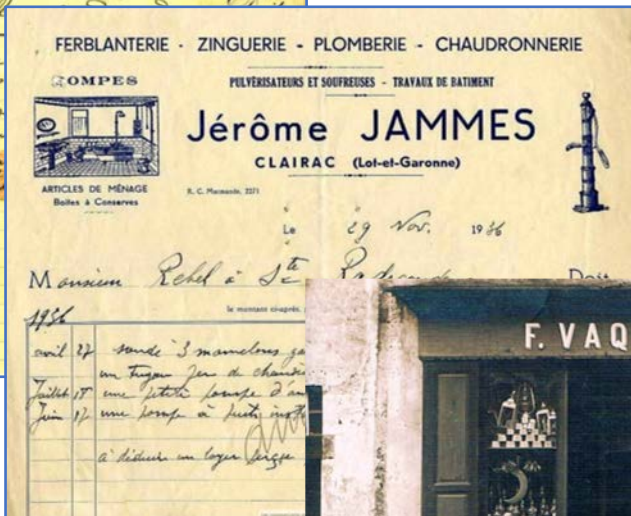 FERBLANTERIE - ZINGUERIE - PLOMBERIE - CHAUDRONNERIE
POMPES
PULVÉRISATEURS ET SOUFREUSES - TRAVAUX DE BATIMENT
Jérôme JAMMES
CLAIRAC (Lot-et-Garonne)
ARTICLES DE MÉNAGE
Boites à Conserves
R. C. Marmande, 2271
Le 29 Nov. 1936
Monsieur Rebel à Ste Radegonde Doit
le montant ci-après,
1936
avril 27 soudé 3 mamelons
un tuyau
Juillet 18 une petite pompe
Juin 17 une pompe à
à déduire un loyer
F. VAQ